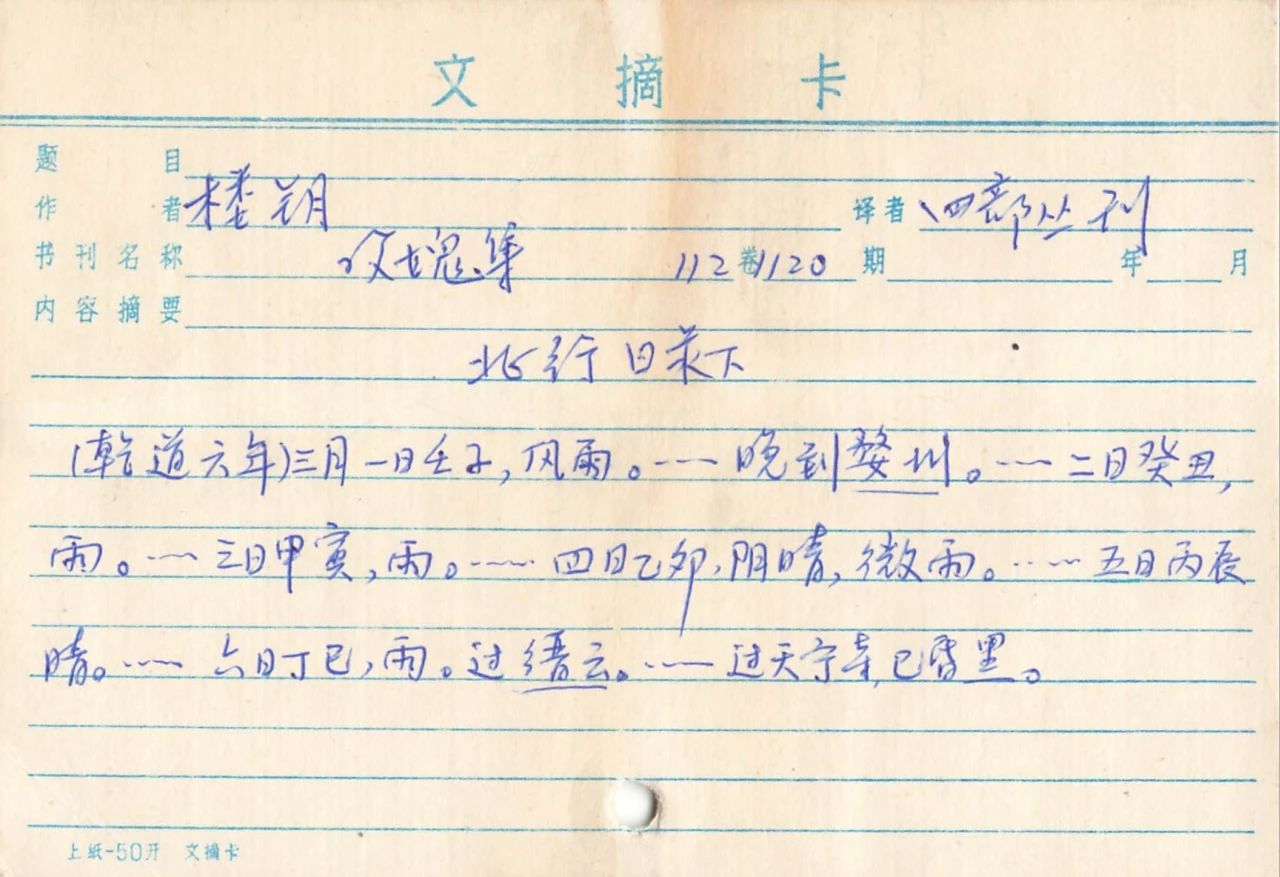 文摘卡
题目
作者 楼玥 译者 四部丛刊
书刊名称 攻媿集 112卷/120期 年 月
内容摘要
北行日录下
(乾道六年)三月一日壬子,风雨。……晚到婺州。……二日癸丑,
雨。……三日甲寅,雨。……四日乙卯,阴晴,微雨。……五日丙辰
晴。……六日丁巳,雨。过缙云。……过天宁寺,已昏黑。
上纸-50开 文摘卡